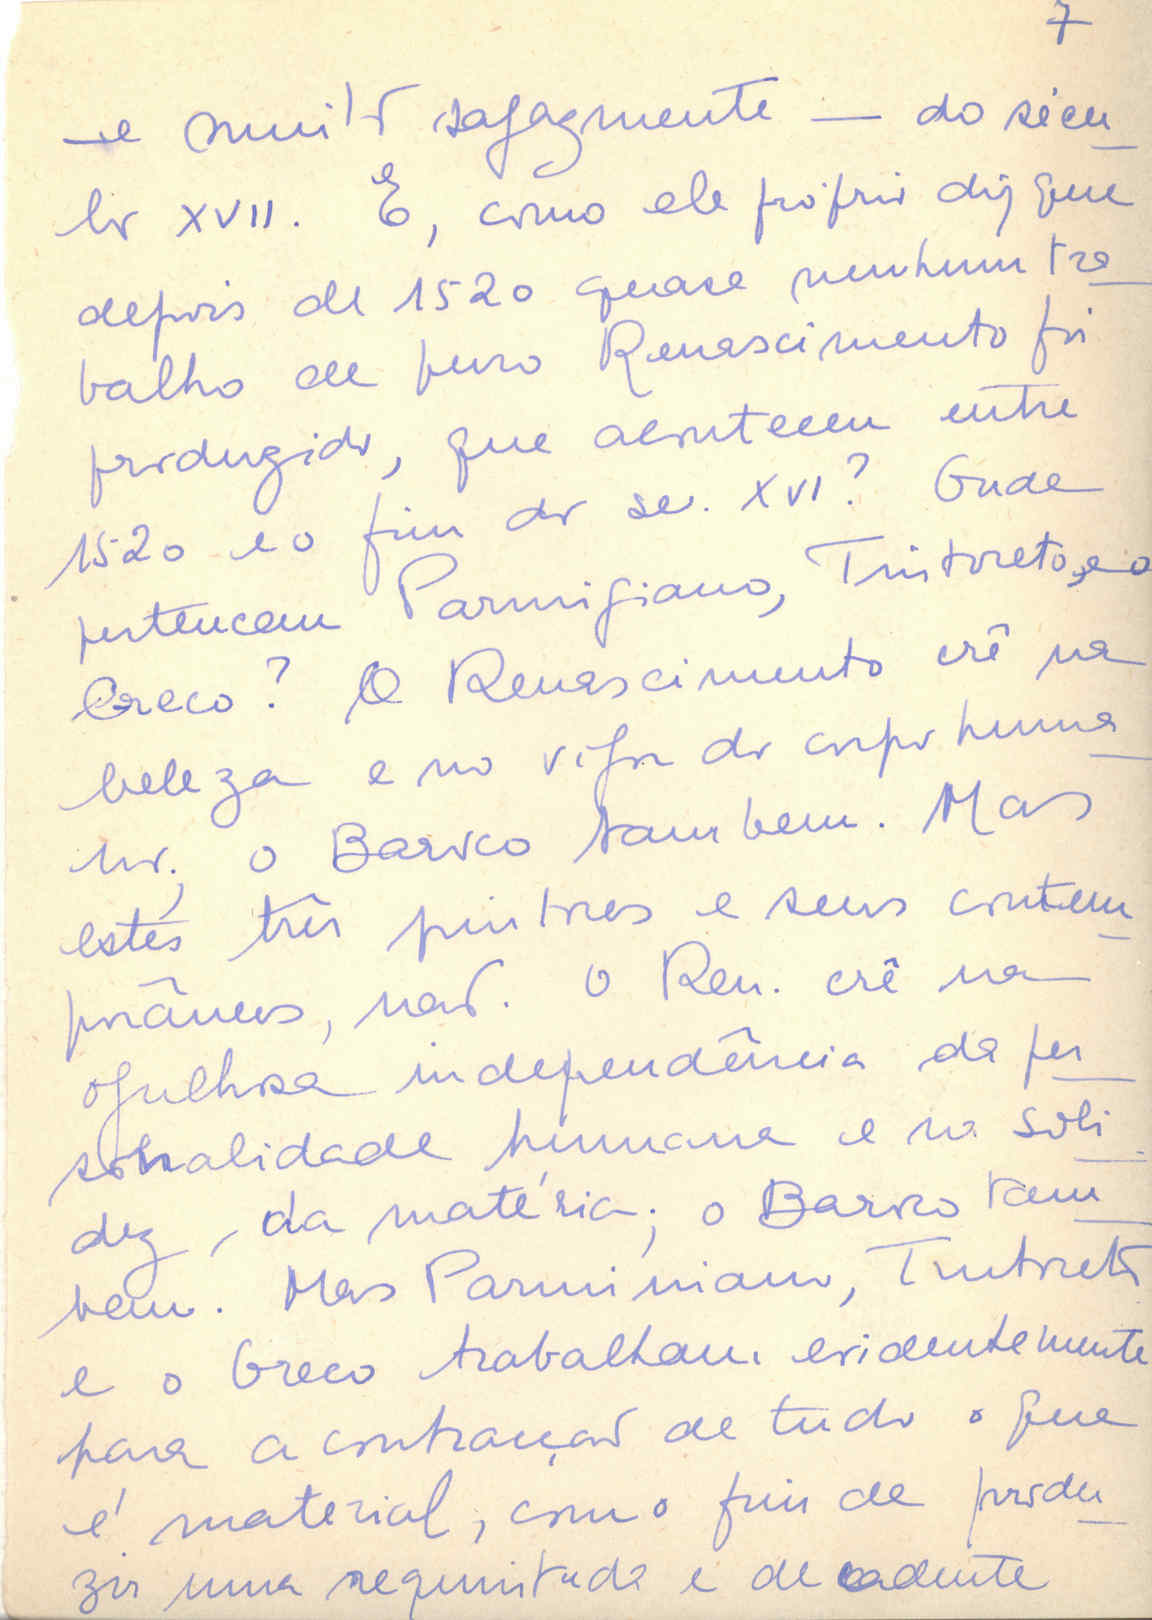 7
— e muito sagazmente — do sécu
lo XVII. E, como ele próprio diz que
depois de 1520 quase nenhum tra
balho de puro Renascimento foi
produzido, que aconteceu entre
1520 e o fim do sec. XVI? Onde
pertencem Parmigiano, Tintoreto, e o
Greco? O Renascimento crê na
beleza e no vigor do corpo huma
no; o Barroco tambem. Mas
estes três pintores e seus contem
porâneos, não. O Ren. crê na
orgulhosa independência da per
sonalidade humana e na soli
dez da matéria; o Barroco tam
bem. Mas Parminiano, Tintoreto
e o Greco trabalham evidentemente
para a contração de tudo o que
é material, com o fim de produ
zir uma requintada e decadente